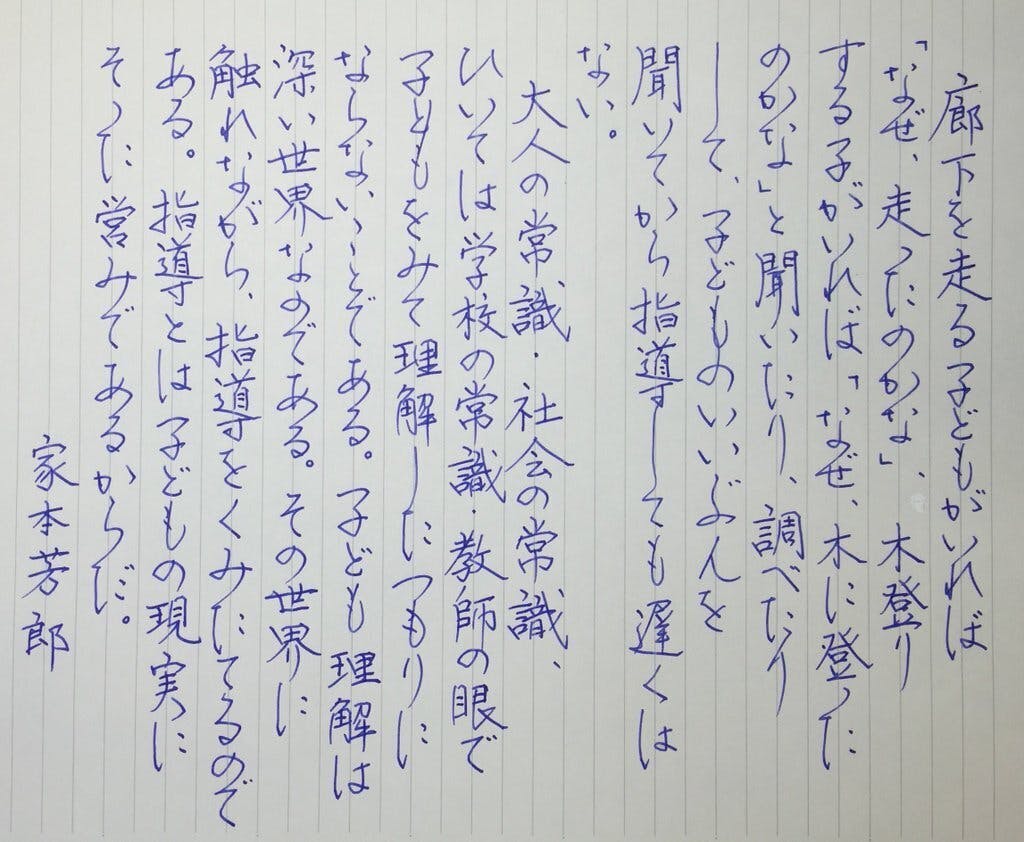 廊下を走る子どもがいれば
「なぜ、走ったのかな」、木登り
する子がいれば「なぜ、木に登った
のかな」と聞いたり、調べたり
して、子どものいいぶんを
聞いてから指導しても遅くは
ない。
大人の常識・社会の常識、
ひいては学校の常識・教師の眼で
子どもをみて理解したつもりに
ならないことである。子ども理解は
深い世界なのである。その世界に
触れながら、指導をくみたてるので
ある。指導とは子どもの現実に
そった営みであるからだ。
家本芳郎